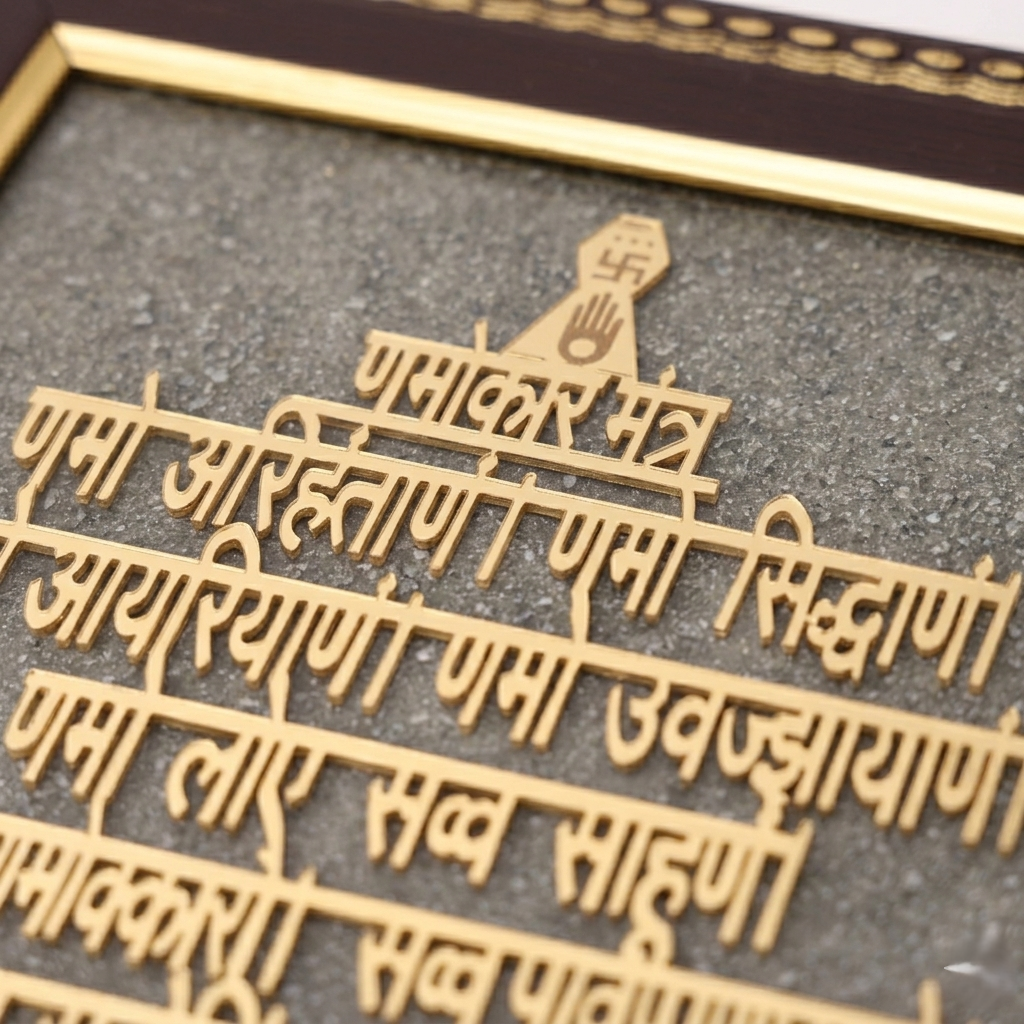 णमोकार मंत्र
णमो अरिहंताणं । णमो सिद्धाणं
आयरियाणं । णमो उवज्झायाणं
णमो लोए सव्व साहूणं
णमोक्कारो सव्व